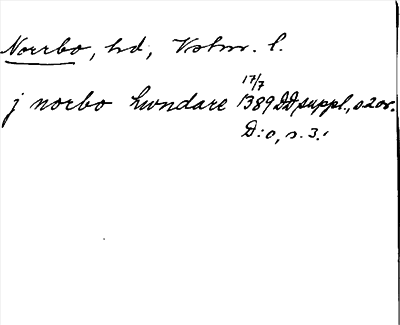 Norrbo, hd, Vstm. l.
17/7
j norbo hwndare 1389 DD suppl., s 2 or.
D:o, s. 3.